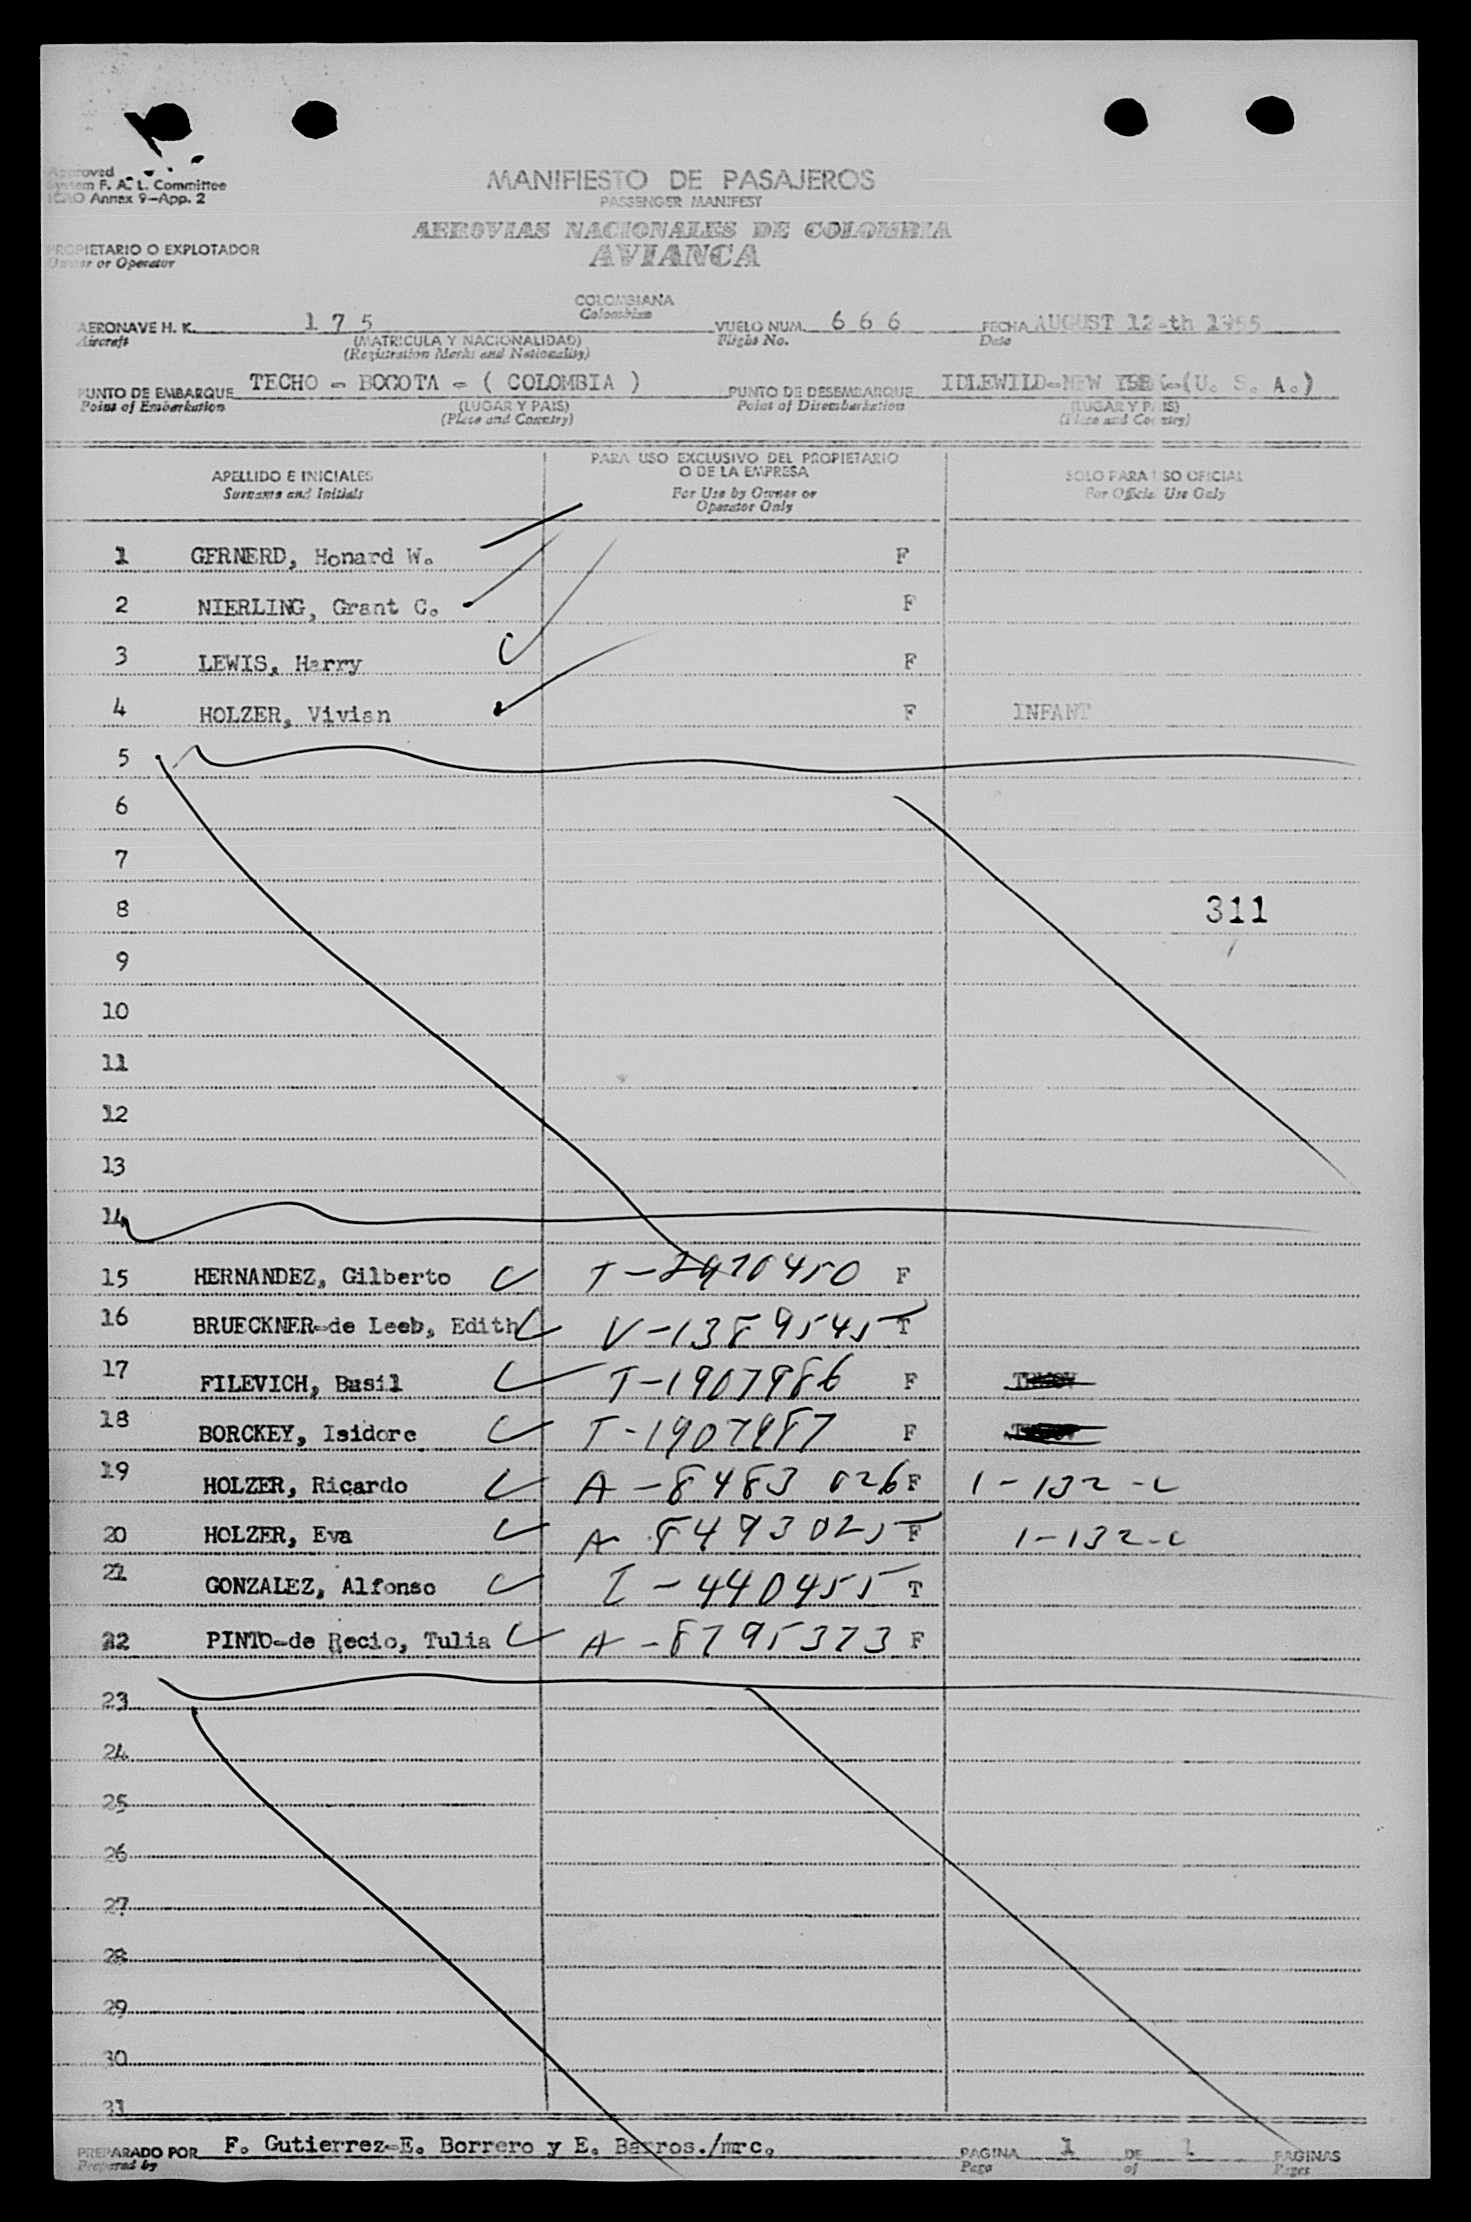 Approved
System F. A. L. Committee
ICAO Annex 9-App. 2
MANIFIESTO DE PASAJEROS
PASSENGER MANIFEST
AEROVIAS NACIONALES DE COLOMBIA
AVIANCA
PROPIETARIO O EXPLOTADOR
Owner or Operator
COLOMBIANA
Colombian
AERONAVE H. K. 1 7 5 VUELO NUM. 6 6 6 FECHA AUGUST 12-th 1955
Aircraft (MATRICULA Y NACIONALIDAD) Flight No. Date
(Registration Marks and Nationality)
PUNTO DE EMBARQUE TECHO - BOGOTA - ( COLOMBIA ) PUNTO DE DESEMBARQUE IDLEWILD-NEW (U. S. A.)
Point of Embarkation (LUGAR Y PAIS) Point of Disembarkation (LUGAR Y PAIS)
(Place and Country) (Place and Country)
APELLIDO E INICIALES PARA USO EXCLUSIVO DEL PROPIETARIO O DE LA EMPRESA SOLO PARA USO OFICIAL
Surname and Initials For Use by Owner or Operator Only For Official Use Only
1 GERNERD, Honard W. F
2 NIERLING, Grant C. F
3 LEWIS, Harry F
4 HOLZER, Vivian F INFANT
5
6
7
8 311
9
10
11
12
13
14
15 HERNANDEZ, Gilberto T-2970450 F
16 BRUECKNER-de Leeb, Edith V-1389545 T
17 FILEVICH, Basil T-1907986 F
18 BORCKEY, Isidore T-1907987 F
19 HOLZER, Ricardo A-8483 026 F 1-132-C
20 HOLZER, Eva A 8493025 F 1-132-C
21 GONZALEZ, Alfonso I-440455 T
22 PINTO-de Recio, Tulia A-8795373 F
23
24
25
26
27
28
29
30
31
PREPARADO POR F. Gutierrez-E. Borrero y E. Barros./mrc. PAGINA 1 DE 1 PAGINAS
Prepared by Page of Pages